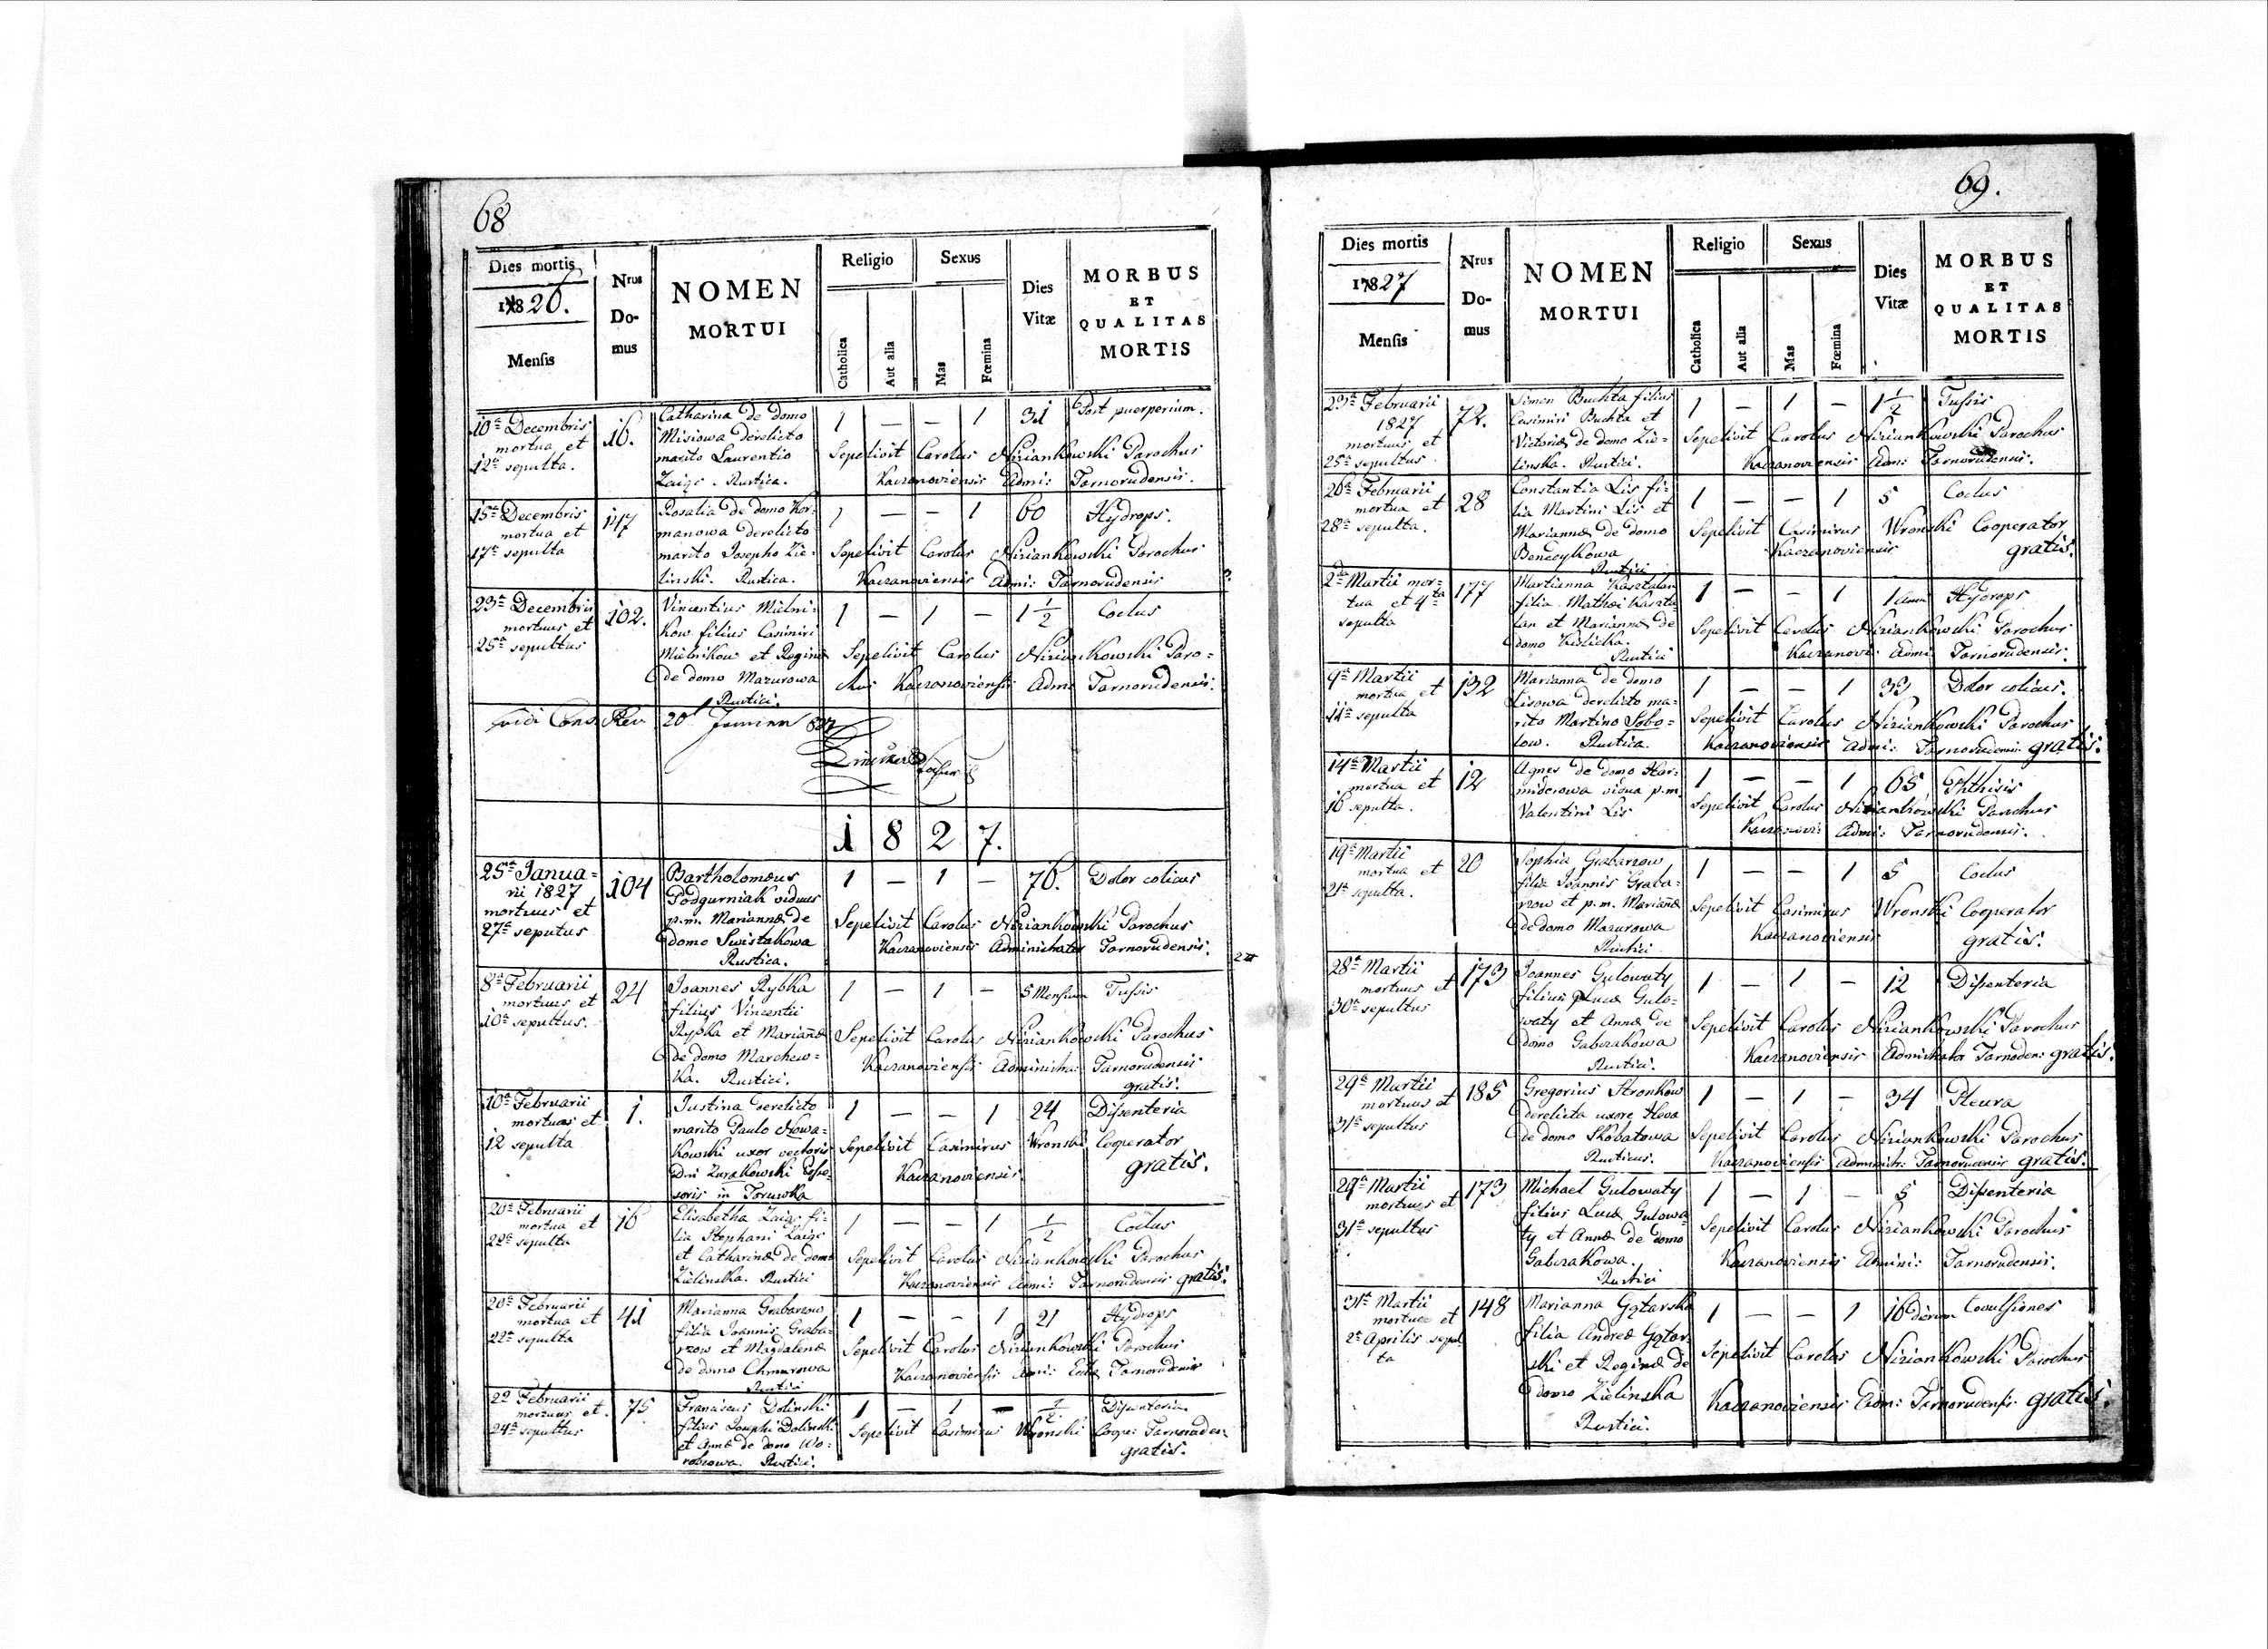 68
Dies mortis
1826.
Mensis
Nrus
Do-
mus
NOMEN
MORTUI
Religio
Catholica
Aut alia
Sexus
Mas
Fœmina
Dies
Vitæ
MORBUS
ET
QUALITAS
MORTIS
10a Decembris
mortua et
12a sepulta.
16.
Catharina de domo
Misiowa derelicto
marito Laurentio
Zaige. Rustica.
1 — — 1 31 Post puerperium.
Sepelivit Carolus Niziankowski Parochus
Kaczanoviensis Admi: Tarnorudensis.
15a Decembris
mortua et
17a sepulta
147
Rosalia de domo Kor-
manowa derelicto
marito Josepho Zie-
linski. Rustica.
1 — — 1 60 Hydrops.
Sepelivit Carolus Niziankowski Parochus
Kaczanoviensis Admi: Tarnorudensis
23a Decembris
mortuus et
25a sepultus
102.
Vincentius Mielni-
kow filius Casimiri
Mielnikow et Reginæ
de domo Mazurowa
Rustici.
1 — 1 — 1 1/2 Coclus
Sepelivit Carolus Niziankowski Paro-
chus Kaczanoviensis Admi Tarnorudensis.
vidi Cons. Rev. 20
1827.
25a Janua-
rii 1827
mortuus et
27a seputus
104
Bartholomæus
Podgurniak viduus
p.m. Mariannæ de
domo Swistakowa
Rustica.
1 — 1 — 76. Dolor colicus
Sepelivit Carolus Niziankowski Parochus
Kaczanoviensis Administrator Tarnorudensis.
8a Februarii
mortuus et
10a sepultus.
24
Joannes Rybka
filius Vincentii
Rybka et Mariañæ
de domo Marchew-
ka. Rustici.
1 — 1 — 5 Mensium Tussis
Sepelivit Carolus Niziankowski Parochus
Kaczanoviensis Administra: Tarnorudensis
gratis.
10a Februarii
mortuas et
12 sepulta
1.
Justina derelicto
marito Paulo Nowa-
kowski uxor vectoris
Dni Zurakowski Posse-
soris in Toruwka
1 — — 1 24 Dissenteria
Sepelivit Casimirus Wronski Cooperator
Kaczanoviensis gratis.
20a Februarii
mortua et
22a sepulta
16
Elisabetha Zaige fi-
lia Stephani Zaige
et Catharinæ de domo
Zielinska. Rustici
1 — — 1 1/2 Coclus
Sepelivit Carolus Niziankowski Parochus
Kaczanoviensis Admi: Tarnorudensis gratis.
20a Februarii
mortua et
22a sepulta
41
Marianna Grabarzow
filia Joannis Graba-
rzow et Magdalenæ
de domo Chmarowa
Rustici
1 — — 1 21 Hydrops
Sepelivit Carolus Niziankowski Parochus
Kaczanoviensis Admi: Tarnorudensis
22 Februarii
mortuus et
24a sepultus
75
Franciscus Dolinski
filius Josephi Dolinski
et Annæ de domo Wo-
robiowa. Rustici.
1 — 1 — 1/2 Dissenteria
Sepelivit Casimirus Wronski Coope: Tarnoruden:
gratis.
69.
Dies mortis
1827
Mensis
Nrus
Do-
mus
NOMEN
MORTUI
Religio
Catholica
Aut alia
Sexus
Mas
Fœmina
Dies
Vitæ
MORBUS
ET
QUALITAS
MORTIS
23a Februarii
1827
mortuus et
25a sepultus
72.
Simon Buchta filius
Casimiri Buchta et
Victoriæ de domo Zie-
linska. Rustici.
1 — 1 — 1 1/2 Tussis
Sepelivit Carolus Niziankowski Parochus
Kaczanoviensis Adm: Tarnorudensis.
26a Februarii
mortua et
28a sepulta.
28
Constantia Lis fi-
lia Martini Lis et
Mariannæ de domo
Benedykowa
Rustici
1 — — 1 5 Coclus
Sepelivit Casimirus Wronski Cooperator
Kaczanoviensis gratis.
2da Martii mor-
tua et 4ta
sepulta
177
Martianna Kasztalan
filia Mathæi Kaszta
lan et Mariannæ de
domo Kislicka.
Rustici
1 — — 1 1 Anni Hydrops
Sepelivit Carolus Niziankowski Parochus
Kaczanovi: Admi Tarnorudensis.
9a Martii
mortua et
11a sepulta
132
Marianna de domo
Lisowa derelicto ma-
rito Martino Sobo-
low. Rustica.
1 — — 1 33 Dolor colicus.
Sepelivit Carolus Niziankowski Parochus
Kaczanoviensis Admi: Tarnorudensis gratis.
14a Martii
mortua et
16 sepulta.
12
Agnes de domo Har-
miderowa vidua p.m.
Valentini Lis
1 — — 1 65 Phthisis
Sepelivit Carolus Niziankowski Parochus
Kaczanovi: Admi: Tarnorudensis.
19a Martii
mortua et
21a sepulta.
20
Sophia Grabarzow
filia Joannis Graba-
rzow et p.m. Marianæ
de domo Mazurowa
Rustici
1 — — 1 5 Coclus
Sepelivit Casimirus Wronski Cooperator
Kaczanoviensis gratis.
28a Martii
mortuus et
30a sepultus
173
Joannes Gulowaty
filius Lucæ Gulo-
waty et Annæ de
domo Gabczakowa
Rustici.
1 — 1 — 12 Dissenteria
Sepelivit Carolus Niziankowski Parochus
Kaczanoviensis Administrator Tarnoden: gratis.
29a Martii
mortuus et
31a sepultus
185
Gregorius Stronkow
derelicta uxore Heva
de domo Skobatowa
Rusticus.
1 — 1 — 34 Pleura
Sepelivit Carolus Niziankowski Parochus
Kaczanoviensis Administr: Tarnorudensis gratis.
29a Martii
mortuus et
31a sepultus
173
Michael Gulowaty
filius Lucæ Gulowa-
ty et Annæ de domo
Gabczakowa.
Rustici
1 — 1 — 5 Dissenteria
Sepelivit Carolus Niziankowski Parochus
Kaczanoviensis Admini: Tarnorudensis.
31a Martii
mortua et
2a Aprilis sepul
ta
148
Marianna Gątarska
filia Andreæ Gątar
ski et Reginæ de
domo Zielinska
Rustici.
1 — — 1 16 dierum Covulsiones
Sepelivit Carolus Niziankowski Parochus
Kaczanoviensis Adm: Tarnorudensis gratis.